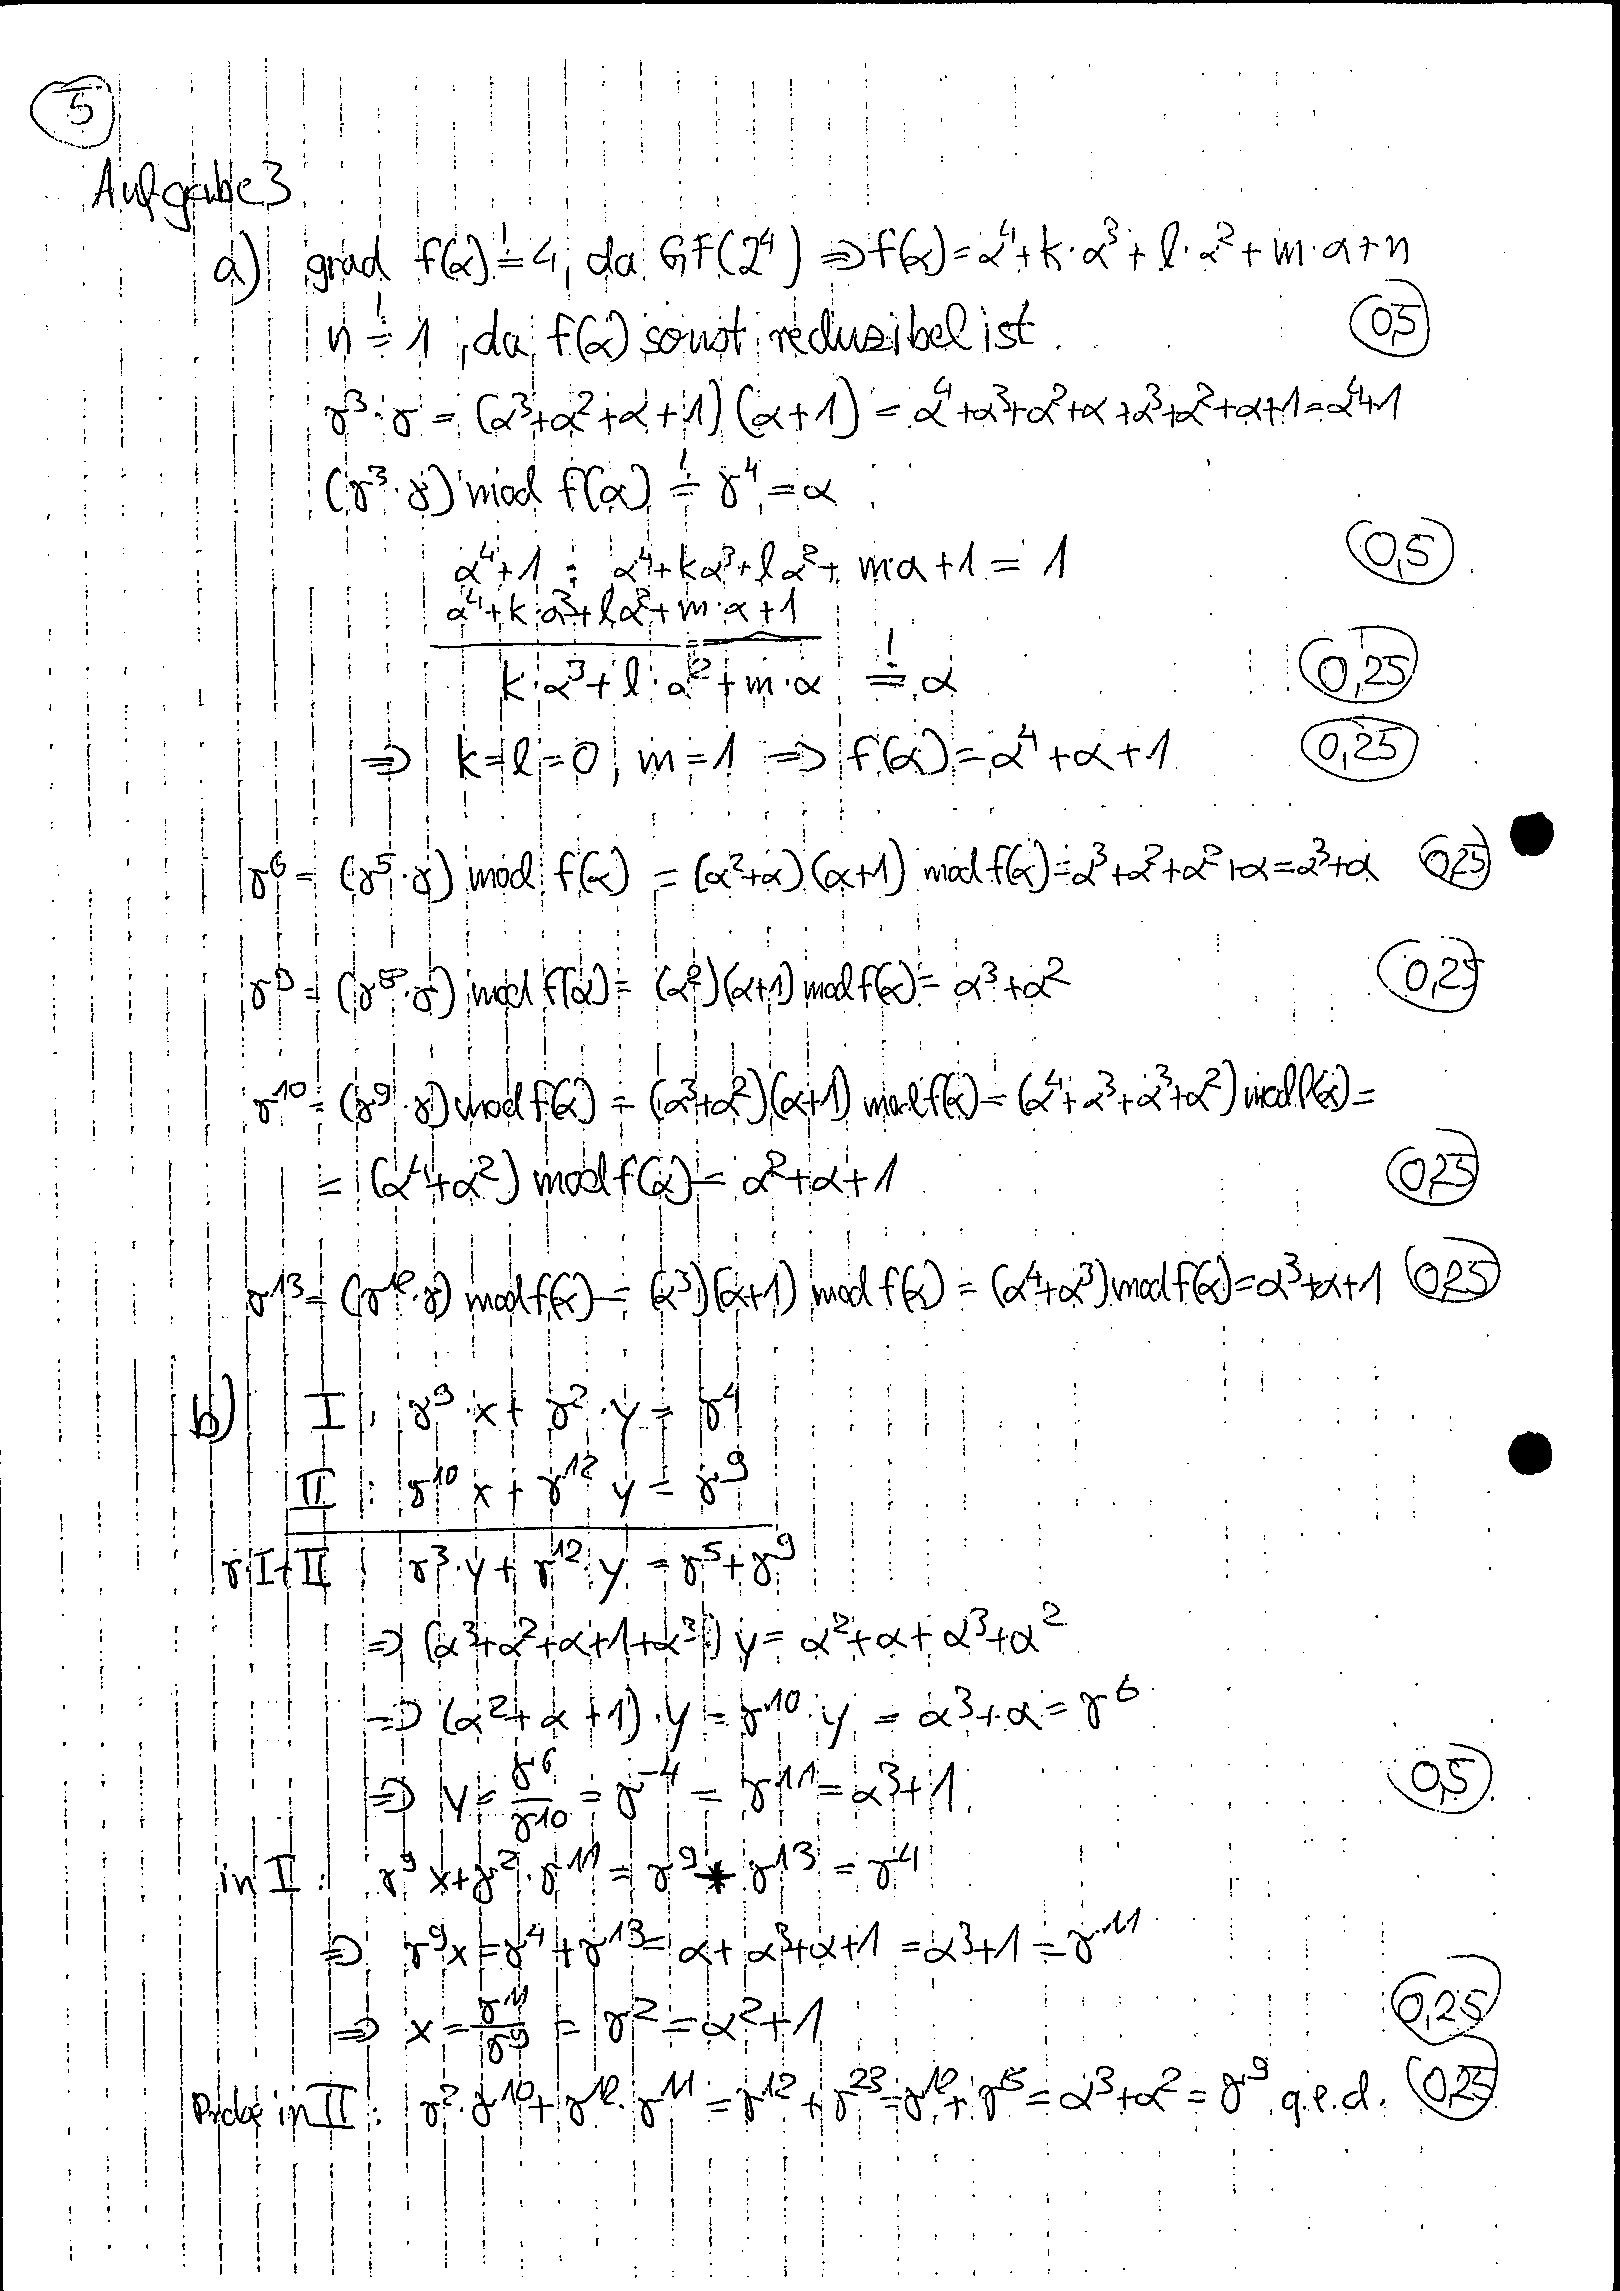 5
Aufgabe 3
a) grad f(α) =! 4, da GF(2⁴) ⇒ f(α) = α⁴ + k·α³ + l·α² + m·α + n
n =! 1, da f(α) sonst reduzibel ist. 0,5
γ³·γ = (α³+α²+α+1)(α+1) = α⁴+α³+α²+α+α³+α²+α+1 = α⁴+1
(γ³·γ) mod f(α) =! γ⁴ = α
α⁴+1 : α⁴+kα³+lα²+mα+1 = 1 0,5
α⁴+k·α³+lα²+m·α+1
k·α³+l·α²+m·α =! α 0,25
⇒ k=l=0, m=1 ⇒ f(α) = α⁴+α+1 0,25
γ⁶ = (γ⁵·γ) mod f(α) = (α²+α)(α+1) mod f(α) = α³+α²+α²+α = α³+α 0,25
γ⁹ = (γ⁸·γ) mod f(α) = (α²)(α+1) mod f(α) = α³+α² 0,25
γ¹⁰ = (γ⁹·γ) mod f(α) = (α³+α²)(α+1) mod f(α) = (α⁴+α³+α³+α²) mod f(α) =
= (α⁴+α²) mod f(α) = α²+α+1 0,25
γ¹³ = (γ¹²·γ) mod f(α) = (α³)(α+1) mod f(α) = (α⁴+α³) mod f(α) = α³+α+1 0,25
b) I: γ⁹·x + γ²·y = γ⁴
II: γ¹⁰ x + γ¹² y = γ⁹
γ·I+II γ³·y + γ¹²·y = γ⁵+γ⁹
⇒ (α³+α²+α+1+α³) y = α²+α+α³+α²
⇒ (α²+α+1)·y = γ¹⁰·y = α³+α = γ⁶
⇒ y = γ⁶/γ¹⁰ = γ⁻⁴ = γ¹¹ = α³+1 0,5
in I: γ⁹ x+γ²·γ¹¹ = γ⁹ * γ¹³ = γ⁴
⇒ γ⁹x = γ⁴+γ¹³ = α+α³+α+1 = α³+1 = γ¹¹
⇒ x = γ¹¹/γ⁹ = γ² = α²+1 0,25
Probe in II: γ²·γ¹⁰+γ¹²·γ¹¹ = γ¹²+γ²³ = γ¹²+γ⁸ = α³+α² = γ⁹ q.e.d. 0,25